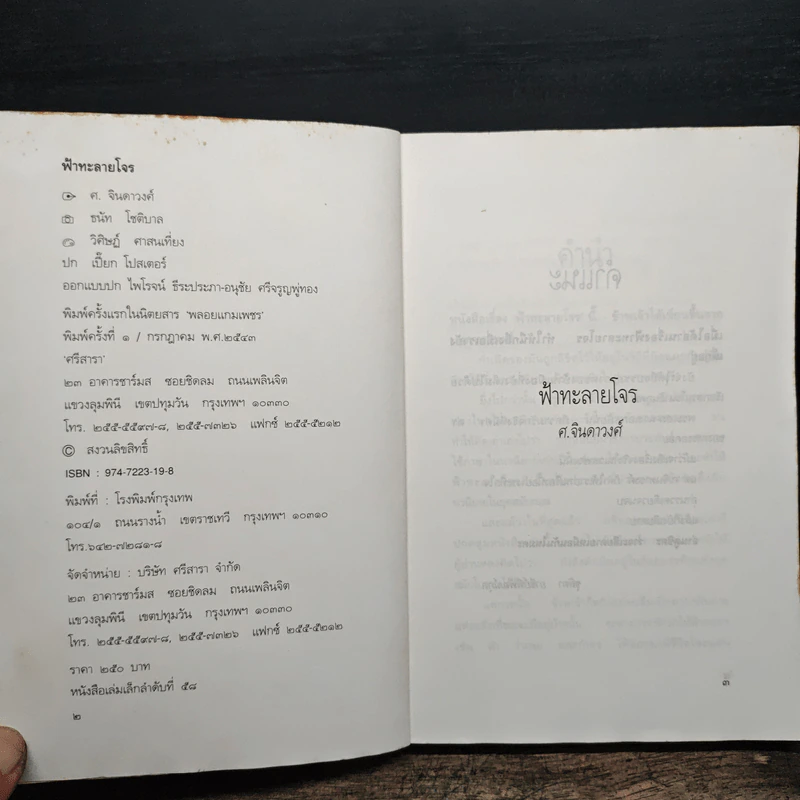 ฟ้าทะลายโจร
ศ. จินดาวงศ์
ธนัท โชติบาล
วิศิษฏ์ ศาสนเที่ยง
ปก เปี๊ยก โปสเตอร์
ออกแบบปก ไพโรจน์ ธีระประภา-อนุชัย ศรีจรูญพู่ทอง
พิมพ์ครั้งแรกในนิตยสาร 'พลอยแกมเพชร'
พิมพ์ครั้งที่ ๑ / กรกฎาคม พ.ศ.๒๕๔๓
'ศรีสารา'
๒๓ อาคารชาร์มส ซอยชิดลม ถนนเพลินจิต
แขวงลุมพินี เขตปทุมวัน กรุงเทพฯ ๑๐๓๓๐
โทร. ๒๕๕-๕๕๙๗-๘, ๒๕๕-๗๓๒๖ แฟกซ์ ๒๕๕-๕๒๑๒
© สงวนลิขสิทธิ์
ISBN : 974-7223-19-8
พิมพ์ที่ : โรงพิมพ์กรุงเทพ
๑๐๔/๑ ถนนรางน้ำ เขตราชเทวี กรุงเทพฯ ๑๐๓๑๐
โทร.๖๔๒-๗๒๘๑-๘
จัดจำหน่าย : บริษัท ศรีสารา จำกัด
๒๓ อาคารชาร์มส ซอยชิดลม ถนนเพลินจิต
แขวงลุมพินี เขตปทุมวัน กรุงเทพฯ ๑๐๓๓๐
โทร. ๒๕๕-๕๕๙๗-๘, ๒๕๕-๗๓๒๖ แฟกซ์ ๒๕๕-๕๒๑๒
ราคา ๒๕๐ บาท
หนังสือเล่มเล็กลำดับที่ ๕๘
๒
ฟ้าทะลายโจร
ศ.จินดาวงศ์
๓